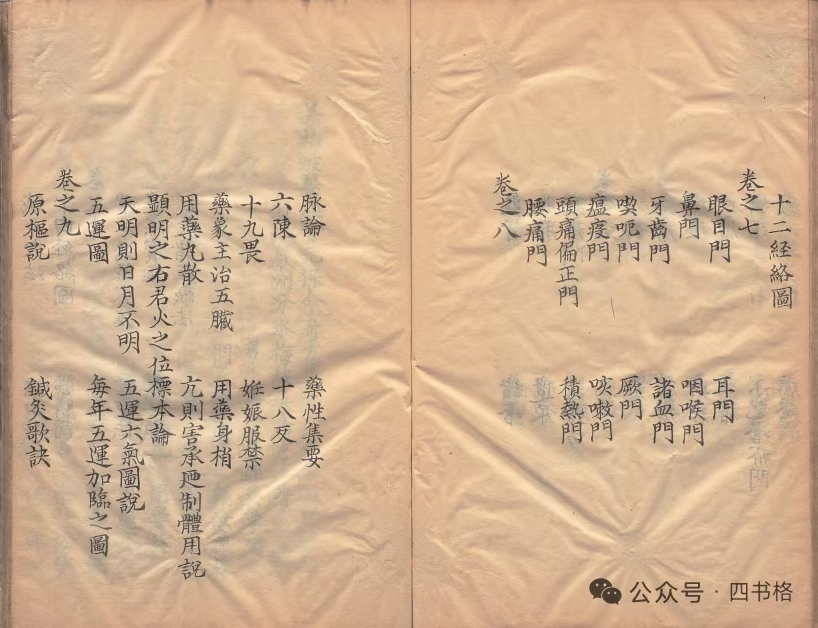 十二経絡圖
卷之七
眼目門 耳門
鼻門 咽喉門
牙齒門 諸血門
喫呃門 厥門
瘟疫門 咳嗽門
頭痛偏正門 積熱門
腰痛門
卷之八
脉論 藥性集要
六陳 十八反
十九畏 妊娠服禁
藥象主治五臟 用藥身梢
用藥丸散 亢則害承廼制體用說
顯明之右君火之位 標本論
天明則日月不明 五運六氣圖說
五運圖 每年五運加臨之圖
卷之九
原樞說 鍼灸歌訣
公众号·四书格